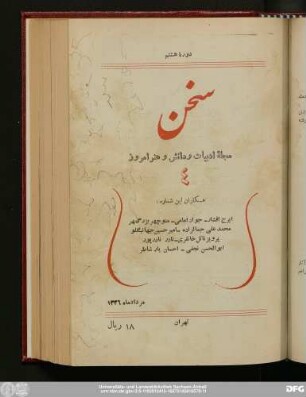 دورهٔ هشتم
سخن
مجلهٔ ادبیات و دانش و هنر امروز
۴
همکاران این شماره:
ایرج افشار - جواد امامی - منوچهر بزرگمهر
محمد علی جمالزاده - امیر حسین جهانبگلو
پرویز ناتل خانلری - نادر نادرپور
ابوالحسن نجفی - احسان یار شاطر
مرداد ماه ۱۳۳۶
تهران
۱۸ ریال
Universitäts- und Landesbibliothek Sachsen-Anhalt
DFG